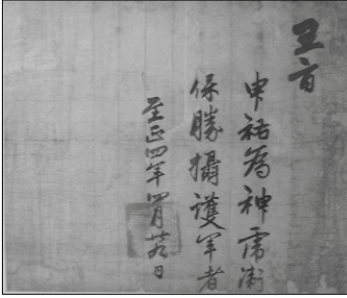 王旨
申祐為神虎衛
保勝攝護軍者
至正四年四月廿九日